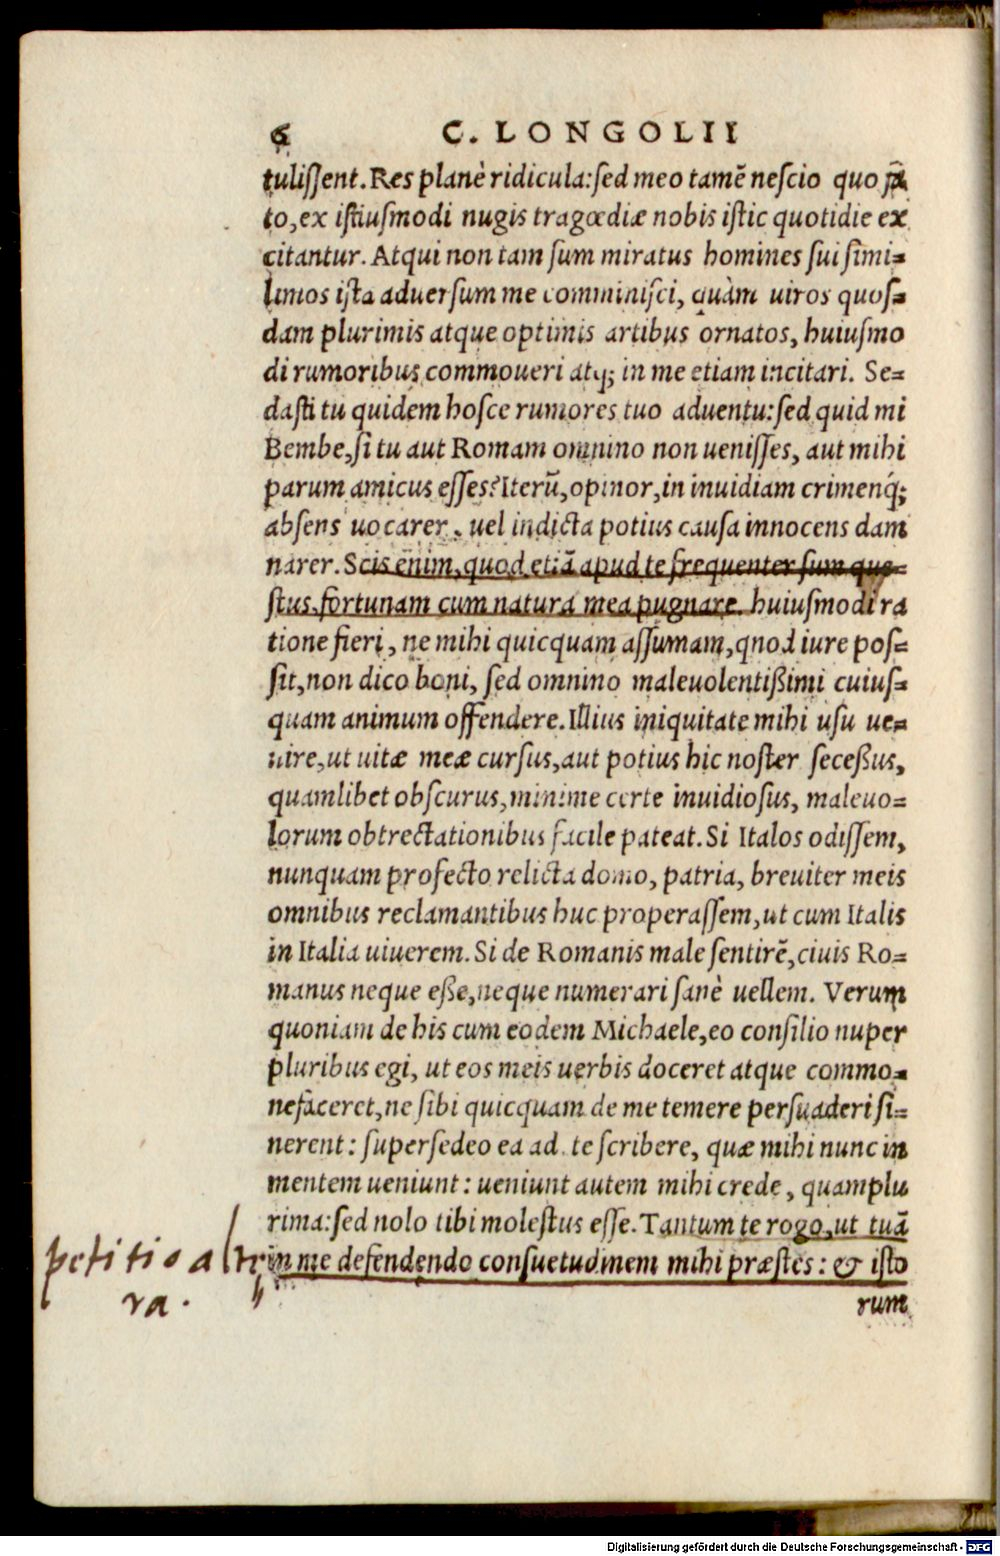 6 C. LONGOLII
tuliſſent. Res planè ridicula: ſed meo tamē neſcio quo pa
cto, ex iſtiuſmodi nugis tragœdiæ nobis iſtic quotidie ex
citantur. Atqui non tam ſum miratus homines ſui ſimi=
limos iſta aduerſum me comminiſci, quàm uiros quoſ=
dam plurimis atque optimis artibus ornatos, huiuſmo
di rumoribus commoueri atq; in me etiam incitari. Se=
daſti tu quidem hoſce rumores tuo aduentu: ſed quid mi
Bembe, ſi tu aut Romam omnino non ueniſſes, aut mihi
parum amicus eſſes? Iterū, opinor, in inuidiam crimenq́;
abſens uocarer, uel indicta potius cauſa innocens dam
narer. Scis enim, quod etiā apud te frequenter ſum que=
ſtus, fortunam cum natura mea pugnare. huiuſmodi ra
tione fieri, ne mihi quicquam aſſumam, qnod iure poſ=
ſit, non dico boni, ſed omnino maleuolentißimi cuiuſ=
quam animum offendere. Illius iniquitate mihi uſu ue=
nire, ut uitæ meæ curſus, aut potius hic noſter ſeceßus,
quamlibet obſcurus, minime certe inuidioſus, maleuo=
lorum obtrectationibus facile pateat. Si Italos odiſſem,
nunquam profecto relicta domo, patria, breuiter meis
omnibus reclamantibus huc properaſſem, ut cum Italis
in Italia uiuerem. Si de Romanis male ſentirē, ciuis Ro=
manus neque eße, neque numerari ſanè uellem. Verum
quoniam de his cum eodem Michaele, eo conſilio nuper
pluribus egi, ut eos meis uerbis doceret atque commo=
nefaceret, ne ſibi quicquam de me temere perſuaderi ſi=
nerent: ſuperſedeo ea ad te ſcribere, quæ mihi nunc in
mentem ueniunt: ueniunt autem mihi crede, quamplu
rima: ſed nolo tibi moleſtus eſſe. Tantum te rogo, ut tuā
in me defendendo conſuetudinem mihi præſtes: & iſto
rum
petitio alte
ra.
Digitalisierung gefördert durch die Deutsche Forschungsgemeinschaft - DFG